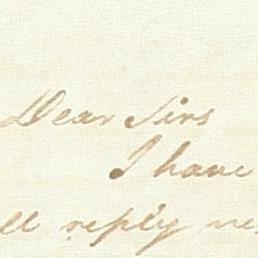 Dear Sirs
I have
ll reply